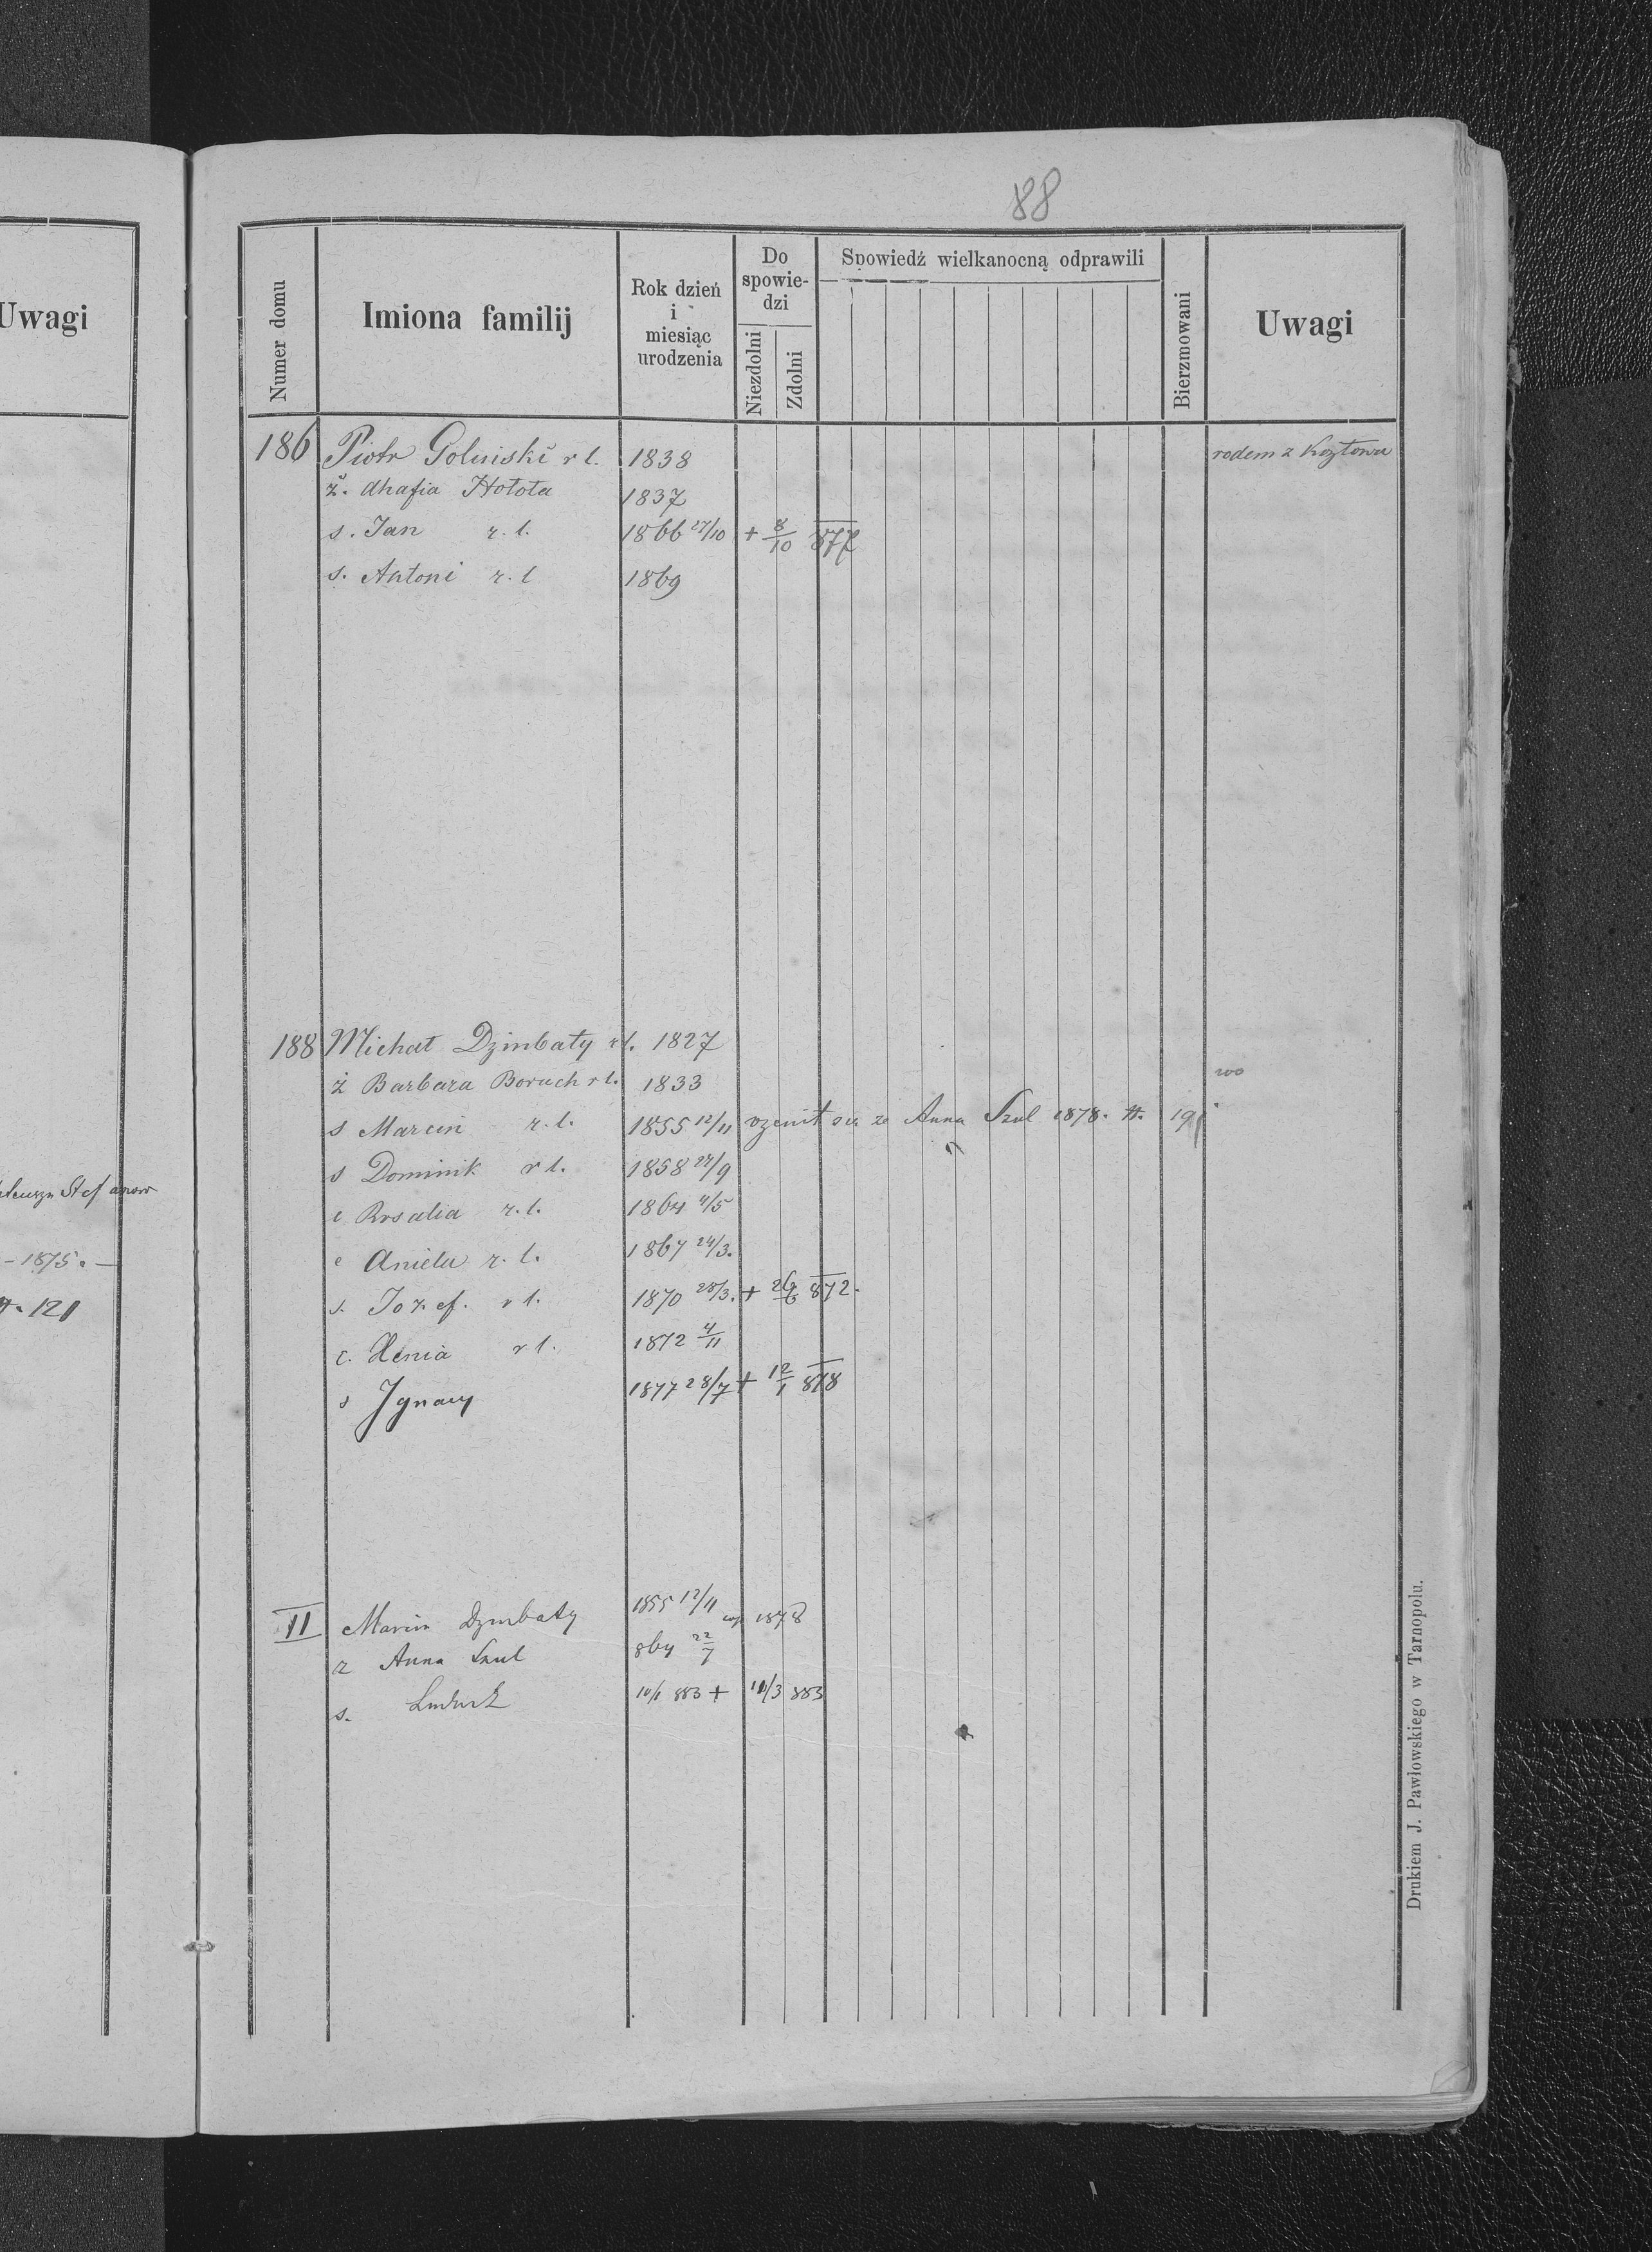 88
Uwagi
Numer domu
Imiona familij
Rok dzień i miesiąc urodzenia
Do spowiedzi
Niezdolni
Zdolni
Spowiedź wielkanocną odprawili
Bierzmowani
Uwagi
186 Piotr Goliński r l. 1838 rodem z Kozłowa
ż. Ahafia Hołota 1837
s. Jan r. l. 1866 27/10 + 8/10 877
s. Antoni r. l 1869
188 Michał Dzimbaty r l. 1827
ż Barbara Boruch r l. 1833
s Marcin r. l. 1855 12/11 ożenił się ze Anna Szul 1878. H. 191
s Dominik r l. 1858 24/9
c Rosalia r. l. 1864 4/5
c Aniela r. l. 1867 24/3.
s. Jozef. r l. 1870 28/3. + 26/6 872.
c. Xenia r l. 1872 4/11
s Ignacy 1877 28/7 + 12/1 878
Stefanow
- 1875. -
H. 121
II Marcin Dzimbaty 1855 12/11 cop 1878
z Anna Szul 864 22/7
s. 10/1 883 + 11/3 883
Drukiem J. Pawłowskiego w Tarnopolu.